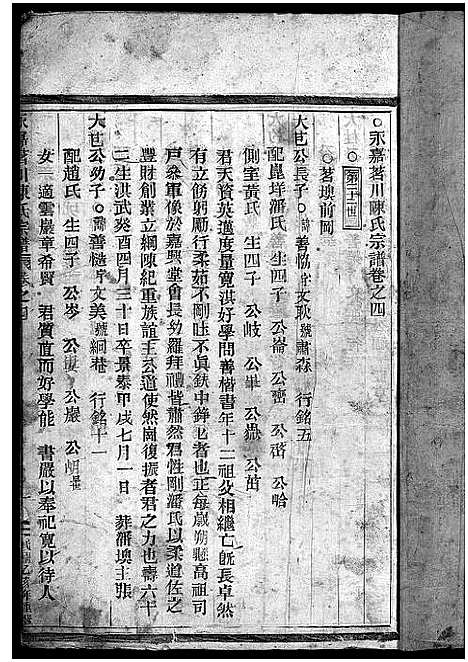 ○永嘉茗川陳氏宗譜卷之四
○第二十一世
○茗墺前岡
大芑公長子○諱善恊字文耿號肅森 行銘五
配崑垟潘氏 生四子 公崙 公密 公峈
側室黃氏 生四子 公岐 公畢 公嶽 公峕
君天資英邁度量寬洪好學問善楷書年十二祖父相繼亡旣長卓然
有立飭躬勵行柔茹不剛吐不眞鉄中錚
者也正每歲朔懸高祖司
戶叅軍像於嘉興堂會長幼羅拜禮皆肅然君性剛潘氏以柔道佐之
豐財創業立綱陳紀重族誼主公道使然崗復振者君之力也壽六十
二生洪武癸酉四月三十日卒景泰甲戌七月一日 葬潘墺主張
大芑公幼子○諱善 字文美號綱菴 行銘十一
配趙氏 生四子 公岑 公 公巖 公
女一適雲嚴章希賢 君質直而好學能 書嚴以奉祀寬以待人
永嘉茗川陳氏宗譜 卷之四